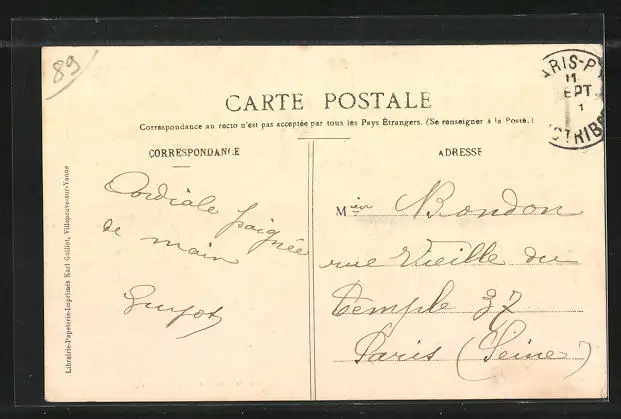 89
CARTE POSTALE
Correspondance au recto n'est pas acceptée par tous les Pays Étrangers. (Se renseigner à la Poste.)
CORRESPONDANCE
Cordiale poignée
de main
Guyot
ADRESSE
Mieur Bondon
rue Vieille du
Temple 37
Paris (Seine)
ARIS-P
11
EPT.
1
STRIB
Librairie-Papeterie-Imprimés Karl Guillot, Villeneuve-sur-Yonne